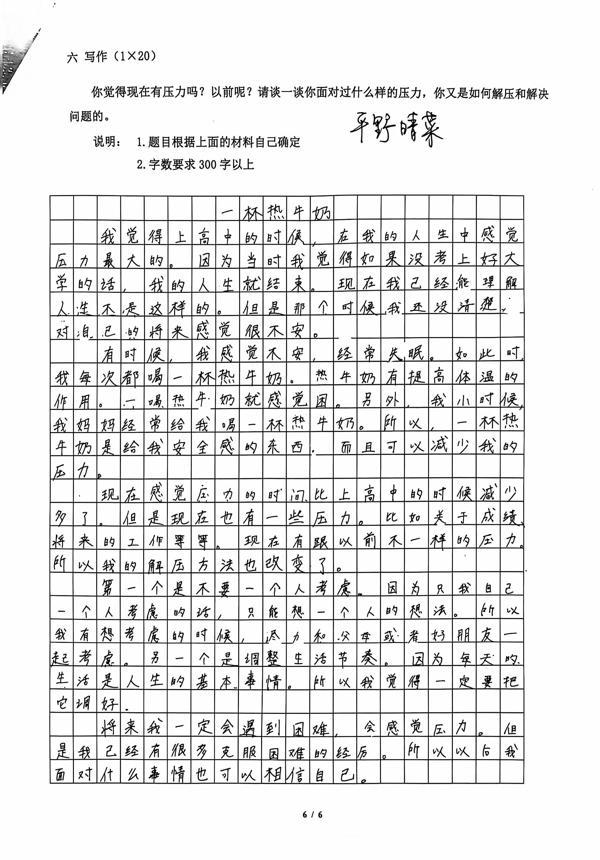 六 写作（1×20）
你觉得现在有压力吗？以前呢？请谈一谈你面对过什么样的压力，你又是如何解压和解决
问题的。
平野晴菜
说明： 1.题目根据上面的材料自己确定
2.字数要求 300 字以上
一杯热牛奶
我觉得上高中的时候，在我的人生中感觉
压力最大的。因为当时我觉得如果没考上好大
学的话，我的人生就结束。现在我已经能理解
人生不是这样的。但是那个时候我还没清楚.
对自己的将来感觉很不安。
有时候，我感觉不安，经常失眠。如此时，
我每次都喝一杯热牛奶。热牛奶有提高体温的
作用。一喝热牛奶就感觉困。另外，我小时候，
我妈妈经常给我喝一杯热牛奶。所以，一杯热
牛奶是给我安全感的东西.而且可以减少我的
压力。
现在感觉压力的时间比上高中的时候减少
多了。但是现在也有一些压力。比如关于成绩，
将来的工作等等。现在有跟以前不一样的压力。
所以我的解压方法也改变了。
第一个是不要一个人考虑。因为只我自己
一个人考虑的话，只能想一个人的想法。所以
我有想考虑的时候，尽力和父母或者好朋友一
起考虑。另一个是调整生活节奏。因为每天的
生活是人生的基本事情。所以我觉得一定要把
它调好.
将来我一定会遇到困难，会感觉压力。但
是我已经有很多克服困难的经历。所以以后我
面对什么事情也可以相信自己。
6 / 6